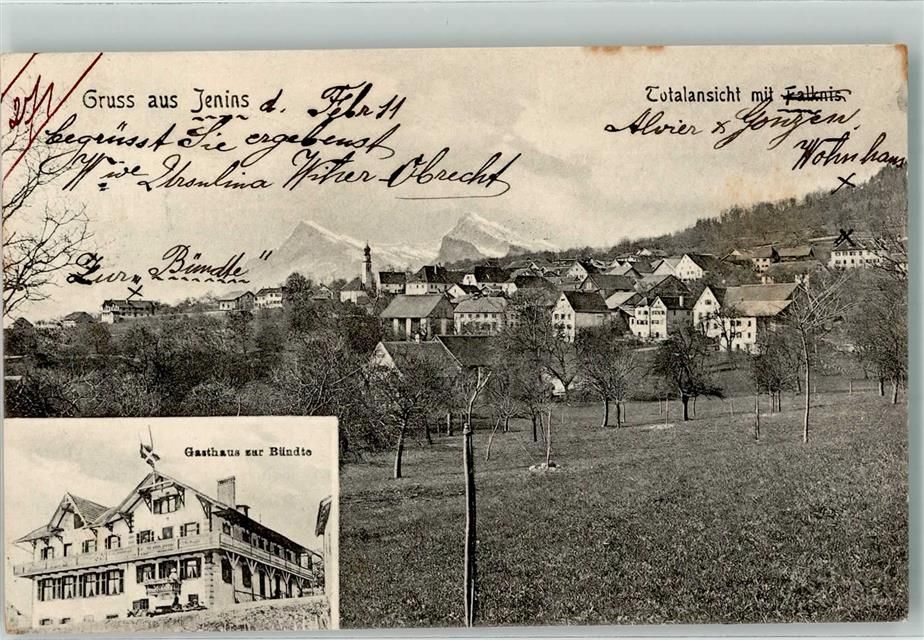 Gruss aus Jenins d. Febr 11
begrüsst Sie ergebenst
Wwe Ursulina Wither-Obrecht
Totalansicht mit Falknis.
Alvier x Gonzen.
Wohnhaus
x
x
Zur „Bündte"
x
Gasthaus zur Bündte